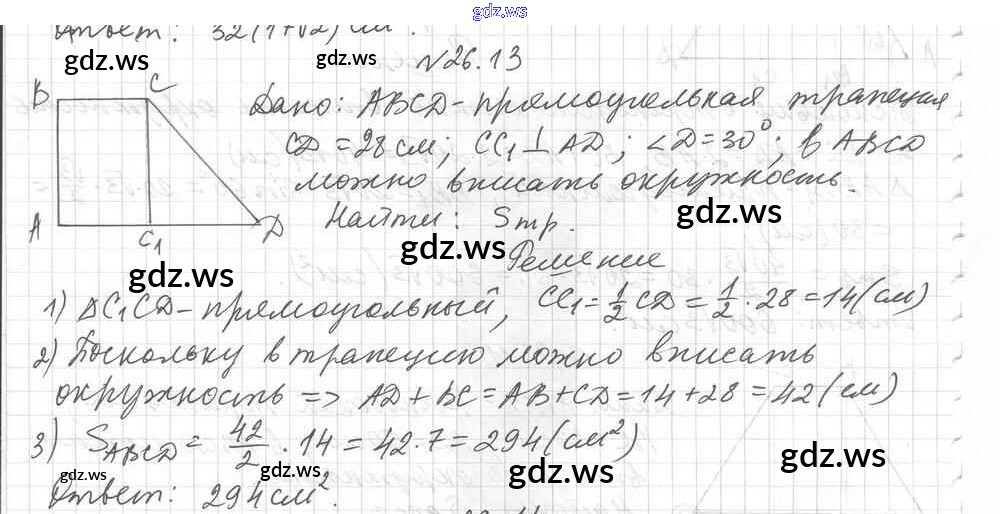 gdz.ws
Ответ: 32(1+√2) см².
gdz.ws gdz.ws
№26.13
B C
A C₁ D
Дано: ABCD-прямоугольная трапеция
CD = 28 см; CC₁ ⊥ AD; ∠D = 30°; в ABCD
можно вписать окружность.
gdz.ws
Найти: Sтр.
gdz.ws
gdz.ws
Решение
1) ΔC₁CD-прямоугольный, CC₁ = 1/2 CD = 1/2 · 28 = 14 (см)
2) Поскольку в трапецию можно вписать
окружность => AD + BC = AB + CD = 14 + 28 = 42 (см)
3) SABCD = 42/2 · 14 = 42 · 7 = 294 (см²)
gdz.ws gdz.ws gdz.ws gdz.ws
Ответ: 294 см².